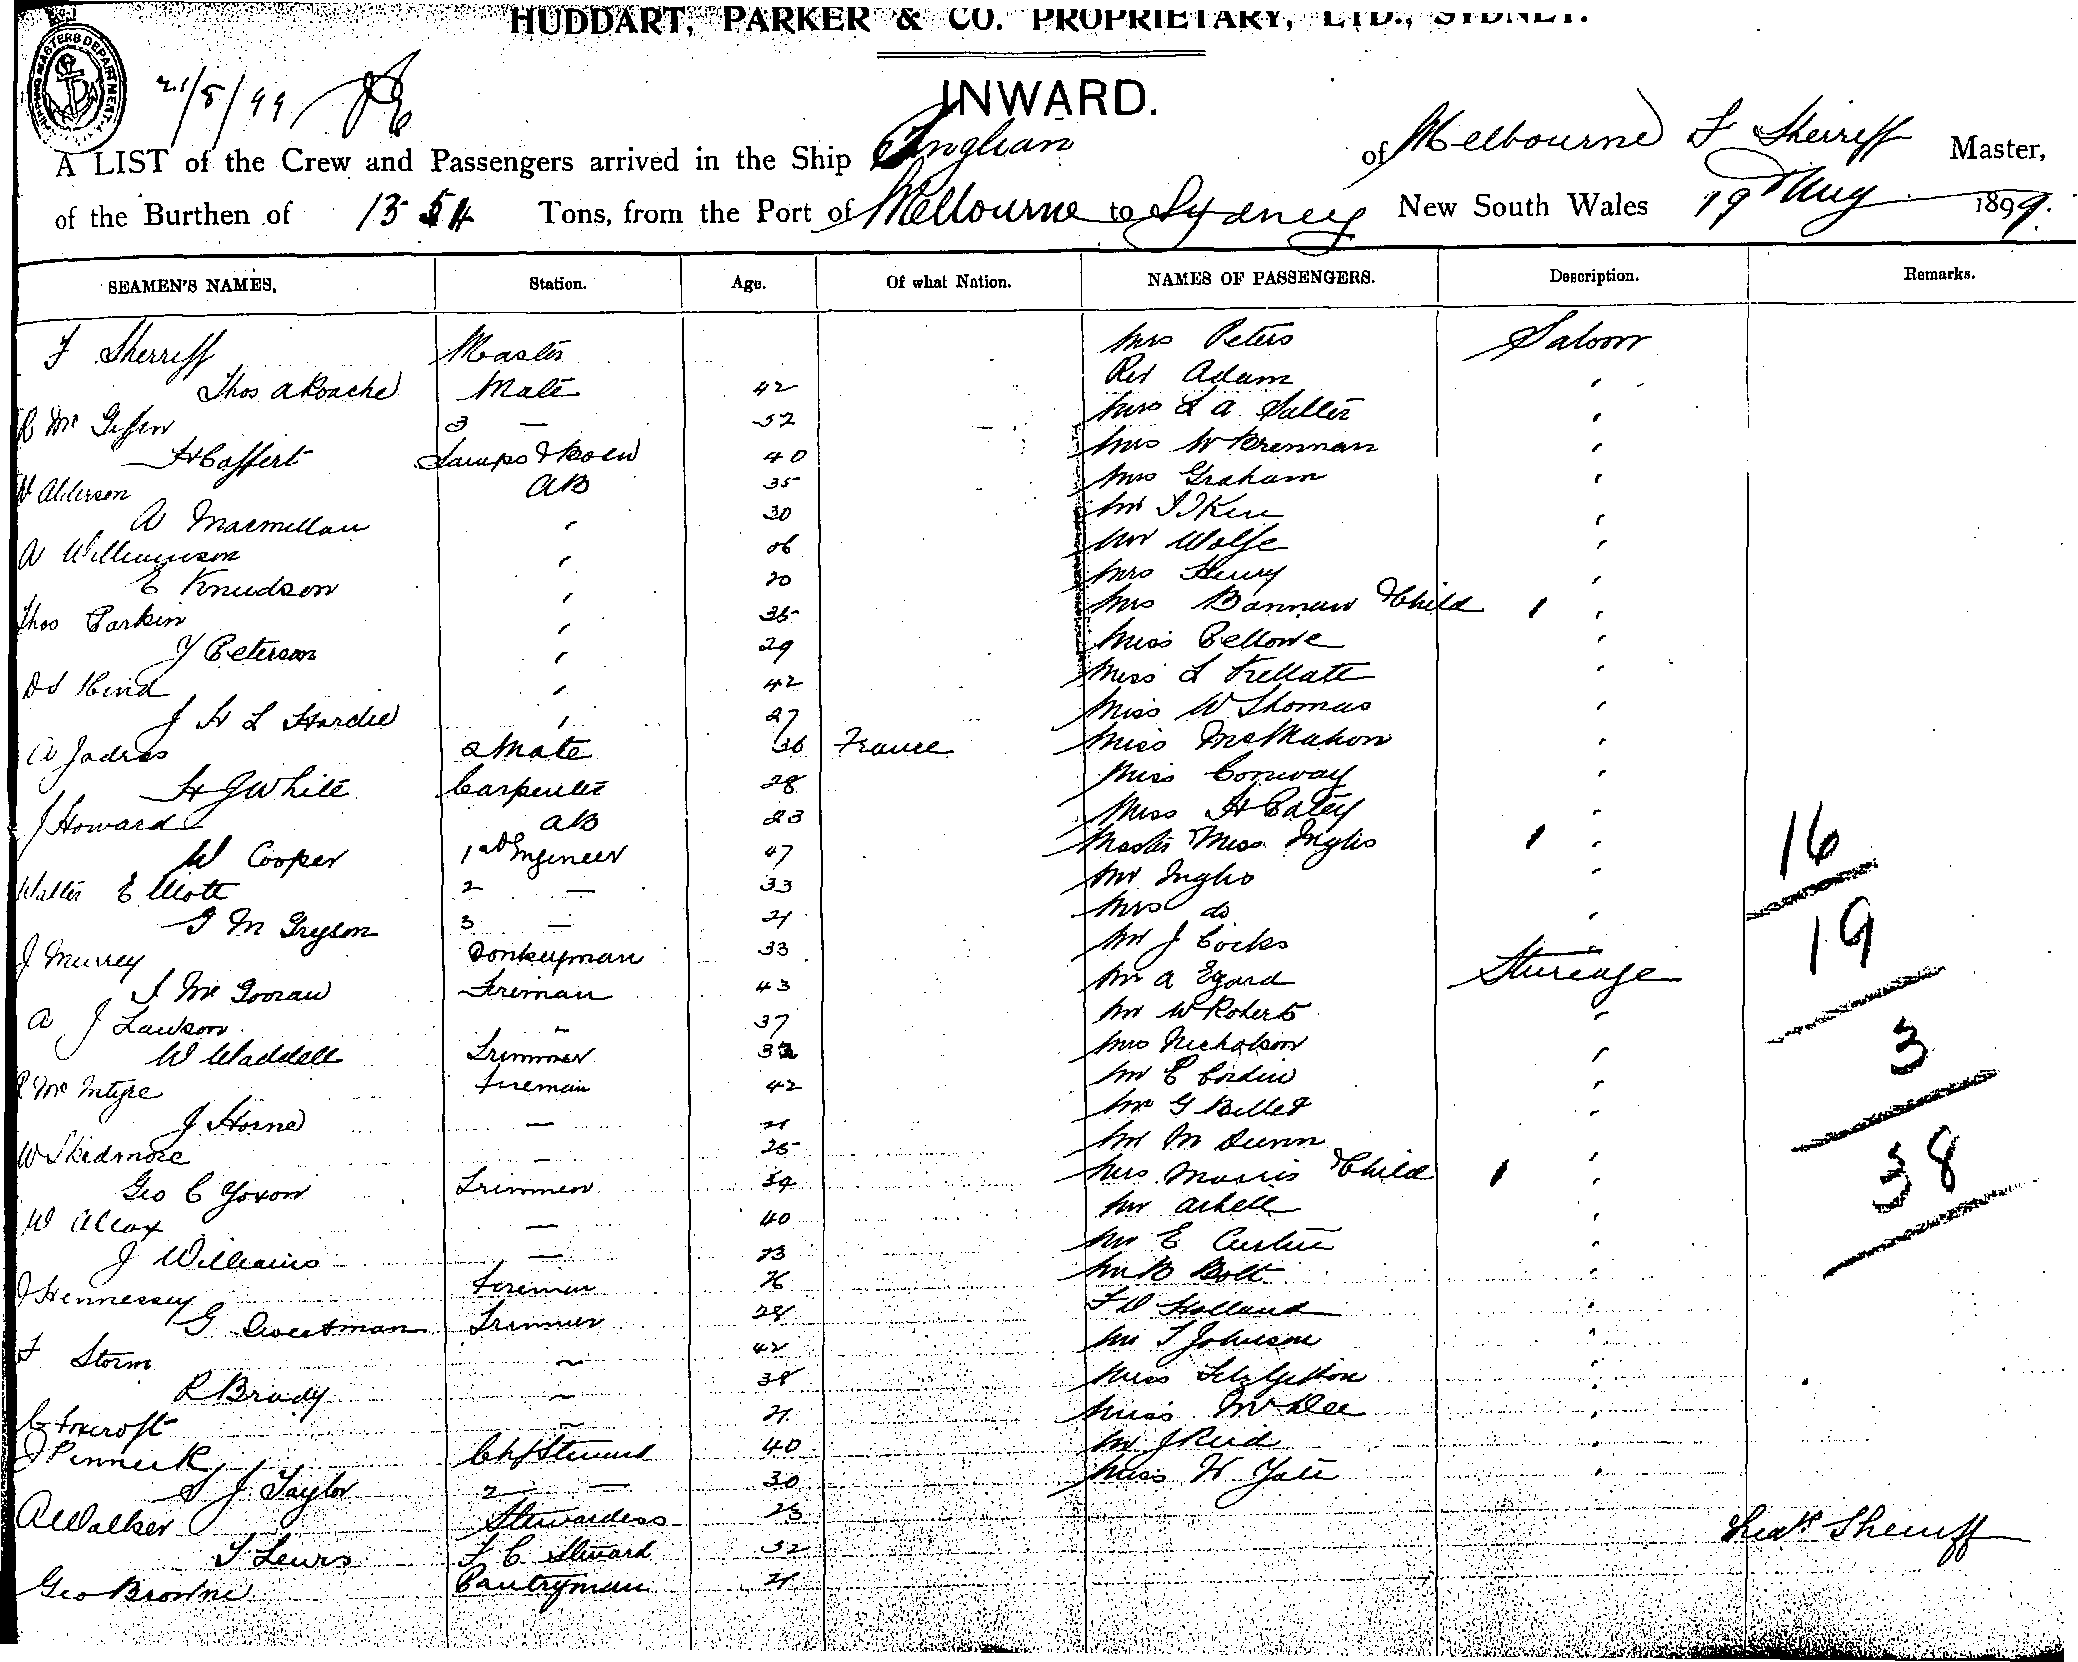 HUDDART, PARKER & CO. PROPRIETARY, LTD., SYDNEY.
21/8/99
INWARD.
A LIST of the Crew and Passengers arrived in the Ship Anglian of Melbourne F Sherriff Master,
of the Burthen of 13 54 Tons, from the Port of Melbourne to Sydney New South Wales 19th Aug 1899.
SEAMEN'S NAMES. Station. Age. Of what Nation. NAMES OF PASSENGERS. Description. Remarks.
F Sherriff Master Mrs Peters Saloon
Thos a Roache Mate 42 Rev Adam "
R Mc 3 — 52 Mrs L A Salter "
H Caffert Lamps & Bosun 40 Mrs W Brennan "
W Alderson AB 35 Mrs Graham "
A Macmillan " 30 Mr "
A Williamson " Mr Wolfe "
E Knudson " 20 Mrs Henry "
Thos Parkin " 35 Mrs Bannan & Child "
Y Peterson " 29 Miss Bellove "
D S Hind " 42 Miss L "
J H L Hardie " 27 Miss W Thomas "
2 Mate 36 France Miss McMahon "
H G White Carpenter 28 Miss Conway "
J Howard AB 23 Miss H Catey "
W Cooper 1st Engineer 47 Master & Miss Inglis "
16
Walter Elliott 2 — 33 Mr Inglis "
G M Gryson 3 — 21 Mrs do "
19
J Murrey Donkeyman 33 Mr J Cocks "
Fireman 43 Mr A Egard Steerage
A J Lawson " 37 Mr W Roberts "
3
W Waddell Trimmer 32 Mrs Nicholson "
R McIntyre Fireman 42 Mr E "
J Horne — 21 Mr G Billet "
W Skidmore — 25 Mr M Dunn "
38
Geo C Yoxon Trimmer 34 Mrs Morris & Child "
W Alcox — 40 Mr Arkell "
J Williams — 23 Mr E Curtin "
J Hennessey Fireman 26 Mr B Bolt "
G Sweetman Trimmer 28 F W Holland "
F Storm ~ 42 Mr T Johnson "
R Brady ~ 38 Miss "
C Foxcroft ~ 21 Miss McDee "
J Pinneck Chf Steward 40 Mr J Reid "
S J Taylor 2 — 30 Miss W Yate "
A Walker Stewardess 23
T Lewis F C Steward 32 Fredk Sherriff
Geo Browne Pantryman 21